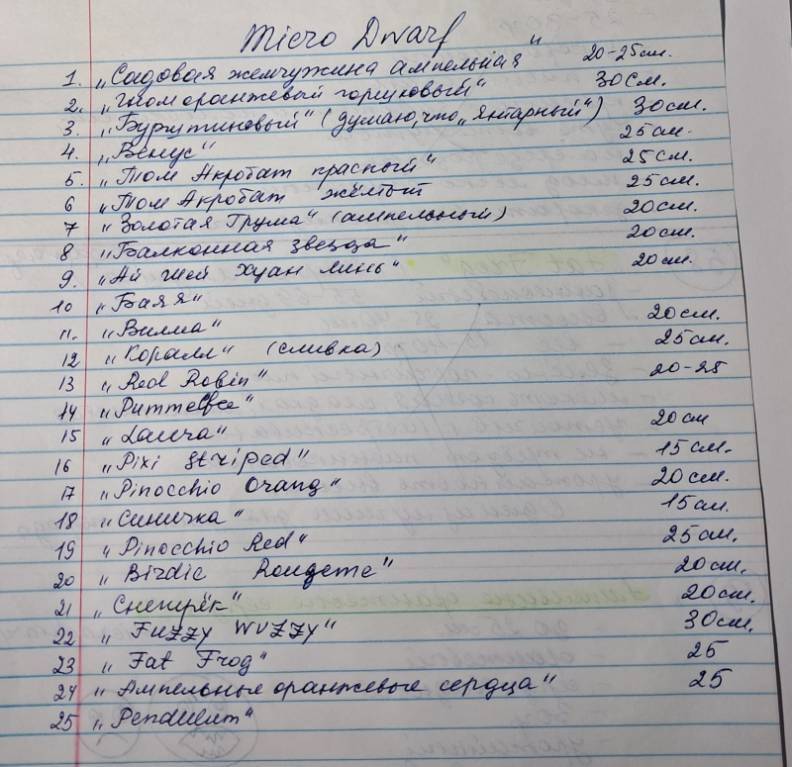 Micro Dwarf
1. „Садовая жемчужина ампельная" 20-25см.
2. „Гном оранжевый горшковый" 30см.
3. „Бурштиновый" (думаю, что „янтарный") 30см.
4. „Венус" 25см.
5. „Том Акробат красный" 25см.
6 „Том Акробат жёлтый 25см.
7 „Золотая Грума" (ампельный) 20см.
8 „Балконная звезда" 20см.
9. „Ай Шей Хуан Минь" 20см.
10 „Баяя"
11. „Вилма" 20см.
12 „Коралл" (сливка) 25см.
13 „Red Robin" 20-25
14
15 „Laura" 20см
16 „Pixi striped" 15см.
17 „Pinocchio Orang" 20см.
18 „Синичка" 15см.
19 „Pinocchio Red" 25см.
20 „Birdie Rougeme" 20см.
21 „Снегирёк" 20см.
22 „Fuzzy Wuzzy" 30см.
23 „Fat Frog" 25
24 „Ампельные оранжевые сердца" 25
25 „Pendulum"